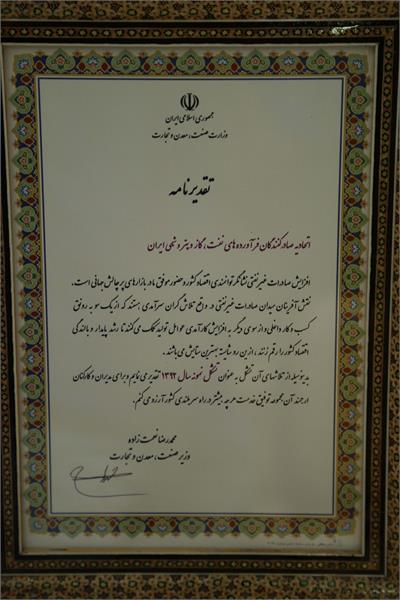 جمهوری اسلامی ایران
وزارت صنعت، معدن و تجارت
تقدیرنامه
اتحادیه صادرکنندگان فرآورده‌های نفت، گاز و پتروشیمی ایران
افزایش صادرات غیرنفتی نشانگر توانمندی اقتصاد کشور و حضور موفق ما در بازارهای پر چالش جهانی است.
نقش آفرینان میدان صادرات غیرنفتی در واقع تلاش‌گران سرآمدی هستند که از یک سو به رونق
کسب و کار داخلی و از سوی دیگر به افزایش کارآمدی عوامل تولید کمک می‌کنند تا رشد پایدار و بالندگی
اقتصاد کشور را رقم زنند، از این رو شایسته بهترین ستایش می‌باشند.
بدینوسیله از تلاشهای آن تشکل به عنوان تشکل نمونه سال ۱۳۹۲ تقدیر می‌نمایم و برای مدیران و کارکنان
ارجمند آن مجموعه توفیق خدمت هر چه بیشتر در راه سربلندی کشور آرزو می‌کنم.
محمدرضا نعمت زاده
وزیر صنعت، معدن و تجارت